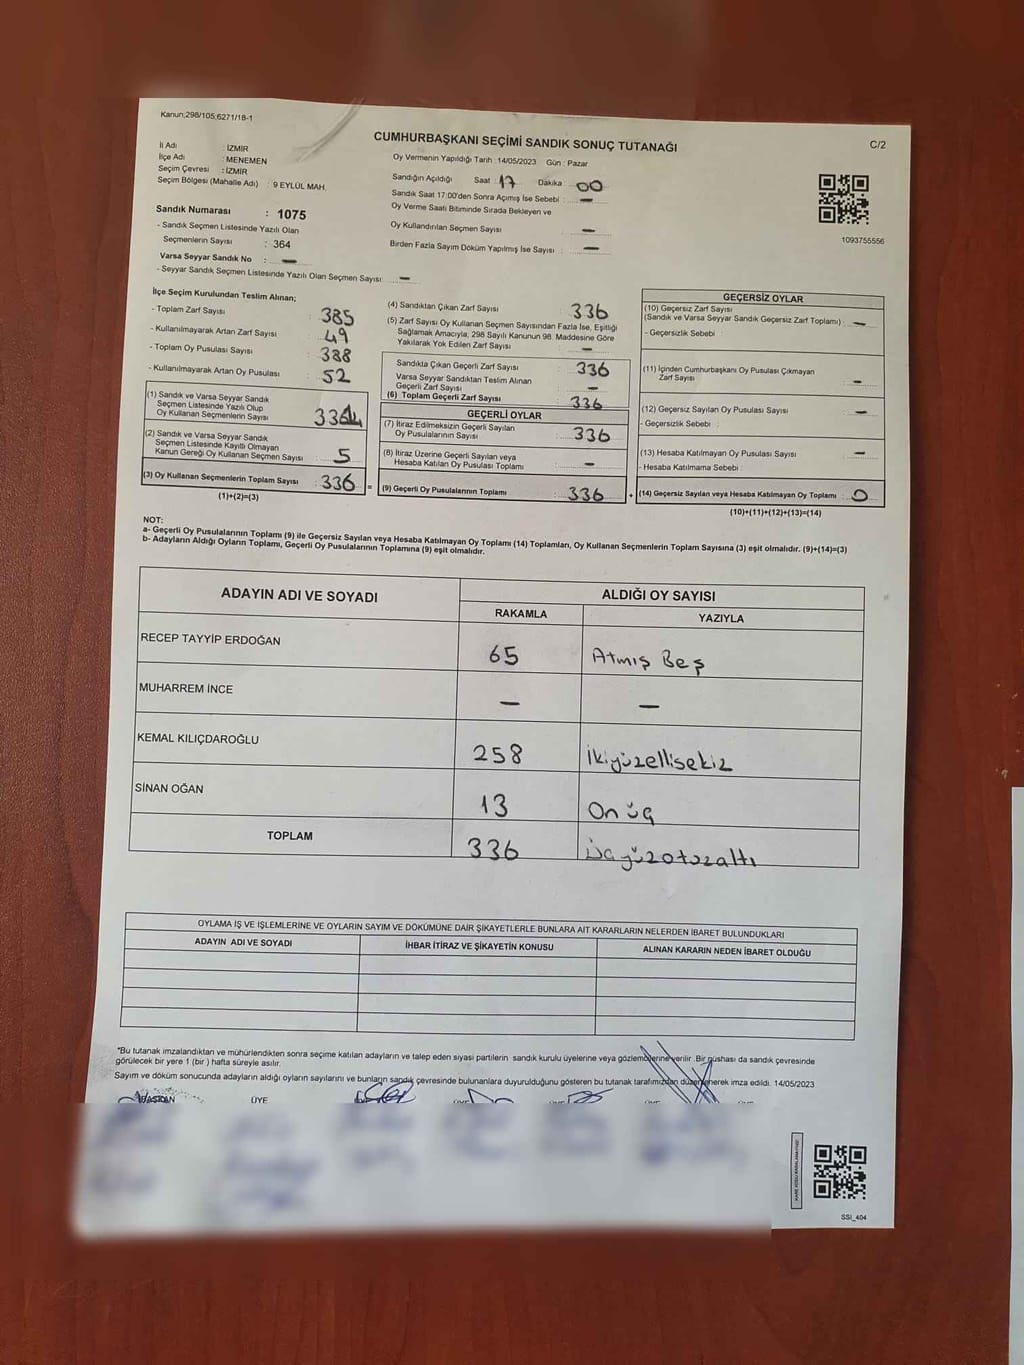 Kanun;298/105;6271/18-1
CUMHURBAŞKANI SEÇİMİ SANDIK SONUÇ TUTANAĞI
C/2
İl Adı : İZMİR
İlçe Adı : MENEMEN
Seçim Çevresi : İZMİR
Seçim Bölgesi (Mahalle Adı) : 9 EYLÜL MAH.
Sandık Numarası : 1075
- Sandık Seçmen Listesinde Yazılı Olan
Seçmenlerin Sayısı : 364
Varsa Seyyar Sandık No : —
- Seyyar Sandık Seçmen Listesinde Yazılı Olan Seçmen Sayısı: —
Oy Vermenin Yapıldığı Tarih :14/05/2023 Gün : Pazar
Sandığın Açıldığı Saat : 17 Dakika : 00
Sandık Saat 17:00'den Sonra Açımış İse Sebebi : —
Oy Verme Saati Bitiminde Sırada Bekleyen ve
Oy Kullandırılan Seçmen Sayısı : —
Birden Fazla Sayım Döküm Yapılmış İse Sayısı : —
1093755556
İlçe Seçim Kurulundan Teslim Alınan;
- Toplam Zarf Sayısı : 385
- Kullanılmayarak Artan Zarf Sayısı : 49
- Toplam Oy Pusulası Sayısı : 388
- Kullanılmayarak Artan Oy Pusulası : 52
(1) Sandık ve Varsa Seyyar Sandık
Seçmen Listesinde Yazılı Olup
Oy Kullanan Seçmenlerin Sayısı
(2) Sandık ve Varsa Seyyar Sandık
Seçmen Listesinde Kayıtlı Olmayan
Kanun Gereği Oy Kullanan Seçmen Sayısı : 5
(3) Oy Kullanan Seçmenlerin Toplam Sayısı : 336
(1)+(2)=(3)
(4) Sandıktan Çıkan Zarf Sayısı : 336
(5) Zarf Sayısı Oy Kullanan Seçmen Sayısından Fazla İse, Eşitliği
Sağlamak Amacıyla, 298 Sayılı Kanunun 98. Maddesine Göre
Yakılarak Yok Edilen Zarf Sayısı : —
Sandıkta Çıkan Geçerli Zarf Sayısı : 336
Varsa Seyyar Sandıktan Teslim Alınan
Geçerli Zarf Sayısı : —
(6) Toplam Geçerli Zarf Sayısı : 336
GEÇERLİ OYLAR
(7) İtiraz Edilmeksizin Geçerli Sayılan
Oy Pusulalarının Sayısı : 336
(8) İtiraz Üzerine Geçerli Sayılan veya
Hesaba Katılan Oy Pusulası Toplamı : —
= (9) Geçerli Oy Pusulalarının Toplamı : 336
GEÇERSİZ OYLAR
(10) Geçersiz Zarf Sayısı
(Sandık ve Varsa Seyyar Sandık Geçersiz Zarf Toplamı) : —
- Geçersizlik Sebebi :
(11) İçinden Cumhurbaşkanı Oy Pusulası Çıkmayan
Zarf Sayısı : —
(12) Geçersiz Sayılan Oy Pusulası Sayısı : —
- Geçersizlik Sebebi :
(13) Hesaba Katılmayan Oy Pusulası Sayısı : —
- Hesaba Katılmama Sebebi :
+ (14) Geçersiz Sayılan veya Hesaba Katılmayan Oy Toplamı : 0
(10)+(11)+(12)+(13)=(14)
NOT:
a- Geçerli Oy Pusulalarının Toplamı (9) ile Geçersiz Sayılan veya Hesaba Katılmayan Oy Toplamı (14) Toplamları, Oy Kullanan Seçmenlerin Toplam Sayısına (3) eşit olmalıdır. (9)+(14)=(3)
b- Adayların Aldığı Oyların Toplamı, Geçerli Oy Pusulalarının Toplamına (9) eşit olmalıdır.
ADAYIN ADI VE SOYADI ALDIĞI OY SAYISI
RAKAMLA YAZIYLA
RECEP TAYYİP ERDOĞAN 65 Atmış Beş
MUHARREM İNCE — —
KEMAL KILIÇDAROĞLU 258 İkiyüzellisekiz
SİNAN OĞAN 13 On üç
TOPLAM 336 üçyüzotuzaltı
OYLAMA İŞ VE İŞLEMLERİNE VE OYLARIN SAYIM VE DÖKÜMÜNE DAİR ŞİKAYETLERLE BUNLARA AİT KARARLARIN NELERDEN İBARET BULUNDUKLARI
ADAYIN ADI VE SOYADI İHBAR İTİRAZ VE ŞİKAYETİN KONUSU ALINAN KARARIN NEDEN İBARET OLDUĞU
*Bu tutanak imzalandıktan ve mühürlendikten sonra seçime katılan adayların ve talep eden siyasi partilerin sandık kurulu üyelerine veya gözlemcilerine verilir. Bir nüshası da sandık çevresinde
görülecek bir yere 1 (bir ) hafta süreyle asılır.
Sayım ve döküm sonucunda adayların aldığı oyların sayılarını ve bunların sandık çevresinde bulunanlara duyurulduğunu gösteren bu tutanak tarafımızdan düzenlenerek imza edildi. 14/05/2023
BAŞKAN ÜYE
SSI_404